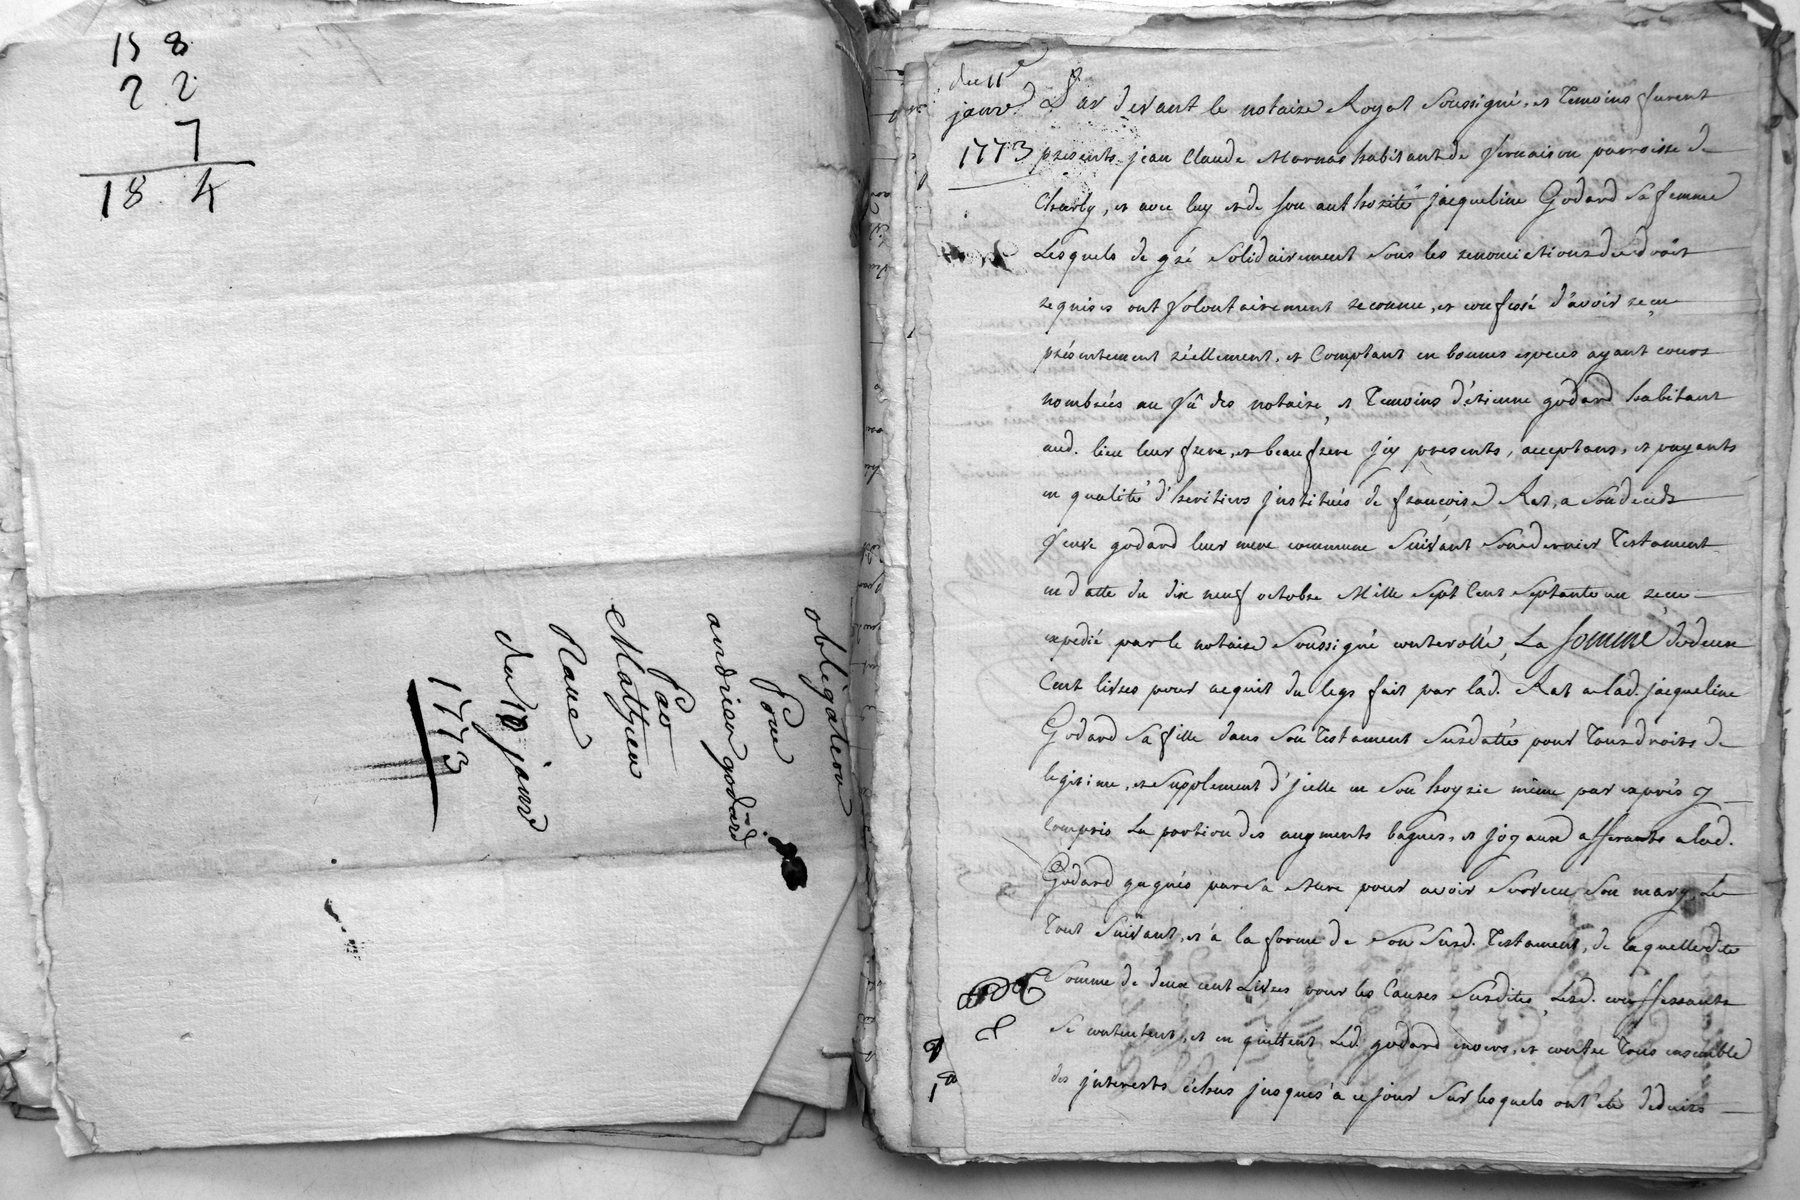 15 8.
2 2.
7
18. 4
obligation
Pour
andrieu godard
Par
Mathieu
Rave
du 10 janvr
1773
du 11e
janvr
1773
Par devant le notaire Royal soussigné, et Temoins furent
presents jean Claude Mornas habitant de Vernaison parroisse de
Charly, et avec luy et de son authorité jacqueline Godard sa femme
Lesquels de gré solidairement sous les renonciations de droit
requises ont Volontairement reconnu, et confessé d'avoir reçu
présentement réellement, et Comptant en bonnes especes ayant cours
nombrées au Vû des notaire, et Temoins d'étienne godard habitant
aud. lieu leur frere, et beau frere jcy presents, acceptans, et payants
en qualité d'heritiers jnstitués de françoise Rat, a son deceds
Veuve godard leur mere commune suivant son dernier Testament
en datte du dix neuf octobre Mille sept Cent septante un reçu
expedié par le notaire soussigné controllé, La somme de deux
Cent livres pour acquit du legs fait par lad. Rat a lad. jacqueline
Godard sa fille dans son Testament susdatté pour Tous droits de
legitime, et supplement d'jcelle en son hoyrie même par exprès y
compris la portion des augments bagues, et joyaux afferants a lad.
Godard gagnés par sa Mere pour avoir survecu son mary, Le
Tout suivant, et à la forme de son susd. Testament, de laquelle dite
somme de deux cent Livres pour les Causes susdites, Lesd. conffessants
se contentent, et en quittent Led. godard envers, et contre Tous ensemble
des jnterests échus jusques à ce jour sur lesquels ont été déduits